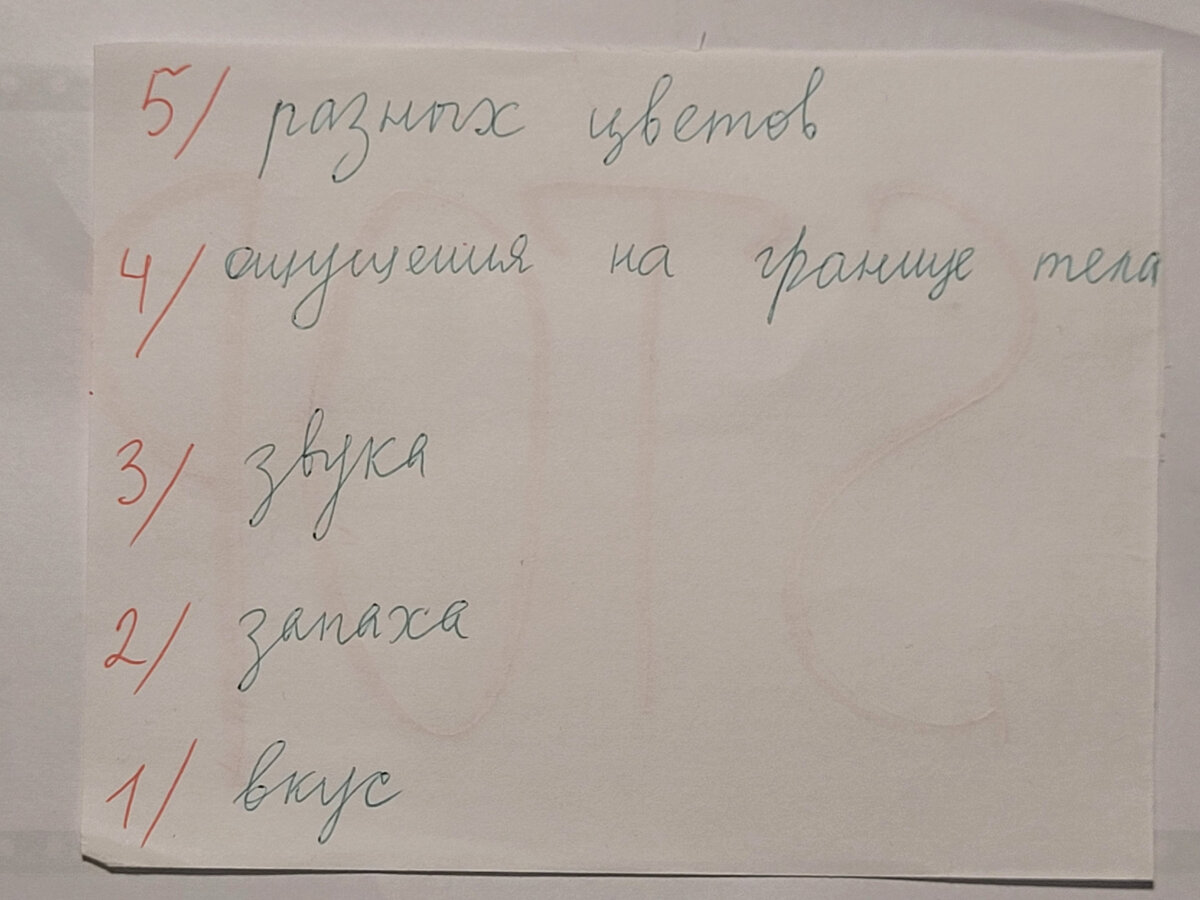 5/ разных цветов
4/ ощущения на границе тела
3/ звука
2/ запаха
1/ вкус